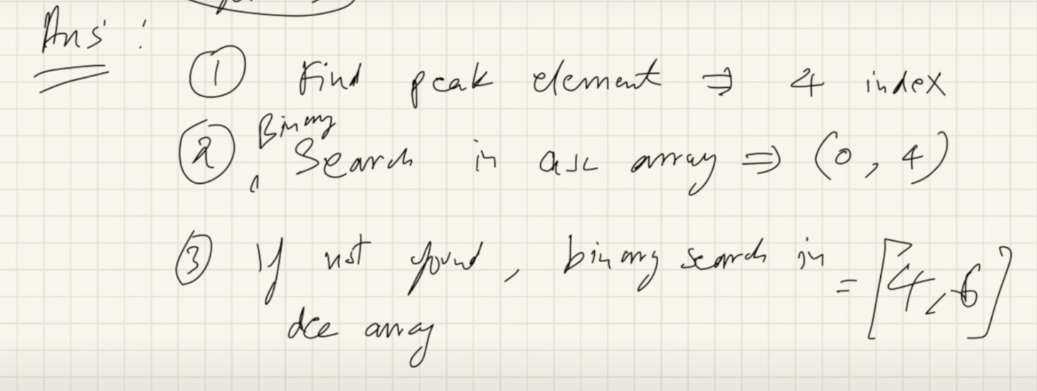 Ans :
① Find peak element ⇒ 4 index
② Binary Search in asc array ⇒ (0, 4)
③ If not found, binary search in
dce array = [4, 6]